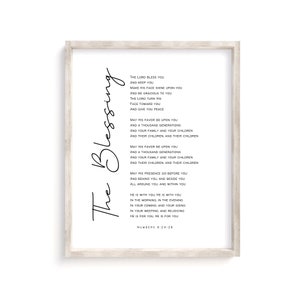 The Blessing
THE LORD BLESS YOU
AND KEEP YOU
MAKE HIS FACE SHINE UPON YOU
AND BE GRACIOUS TO YOU
THE LORD TURN HIS
FACE TOWARD YOU
AND GIVE YOU PEACE
MAY HIS FAVOR BE UPON YOU
AND A THOUSAND GENERATIONS
AND YOUR FAMILY AND YOUR CHILDREN
AND THEIR CHILDREN, AND THEIR CHILDREN
MAY HIS FAVOR BE UPON YOU
AND A THOUSAND GENERATIONS
AND YOUR FAMILY AND YOUR CHILDREN
AND THEIR CHILDREN, AND THEIR CHILDREN
MAY HIS PRESENCE GO BEFORE YOU
AND BEHIND YOU AND BESIDE YOU
ALL AROUND YOU AND WITHIN YOU
HE IS WITH YOU HE IS WITH YOU
IN THE MORNING, IN THE EVENING
IN YOUR COMING AND YOUR GOING
IN YOUR WEEPING, AND REJOICING
HE IS FOR YOU HE IS FOR YOU
NUMBERS 6:24-26